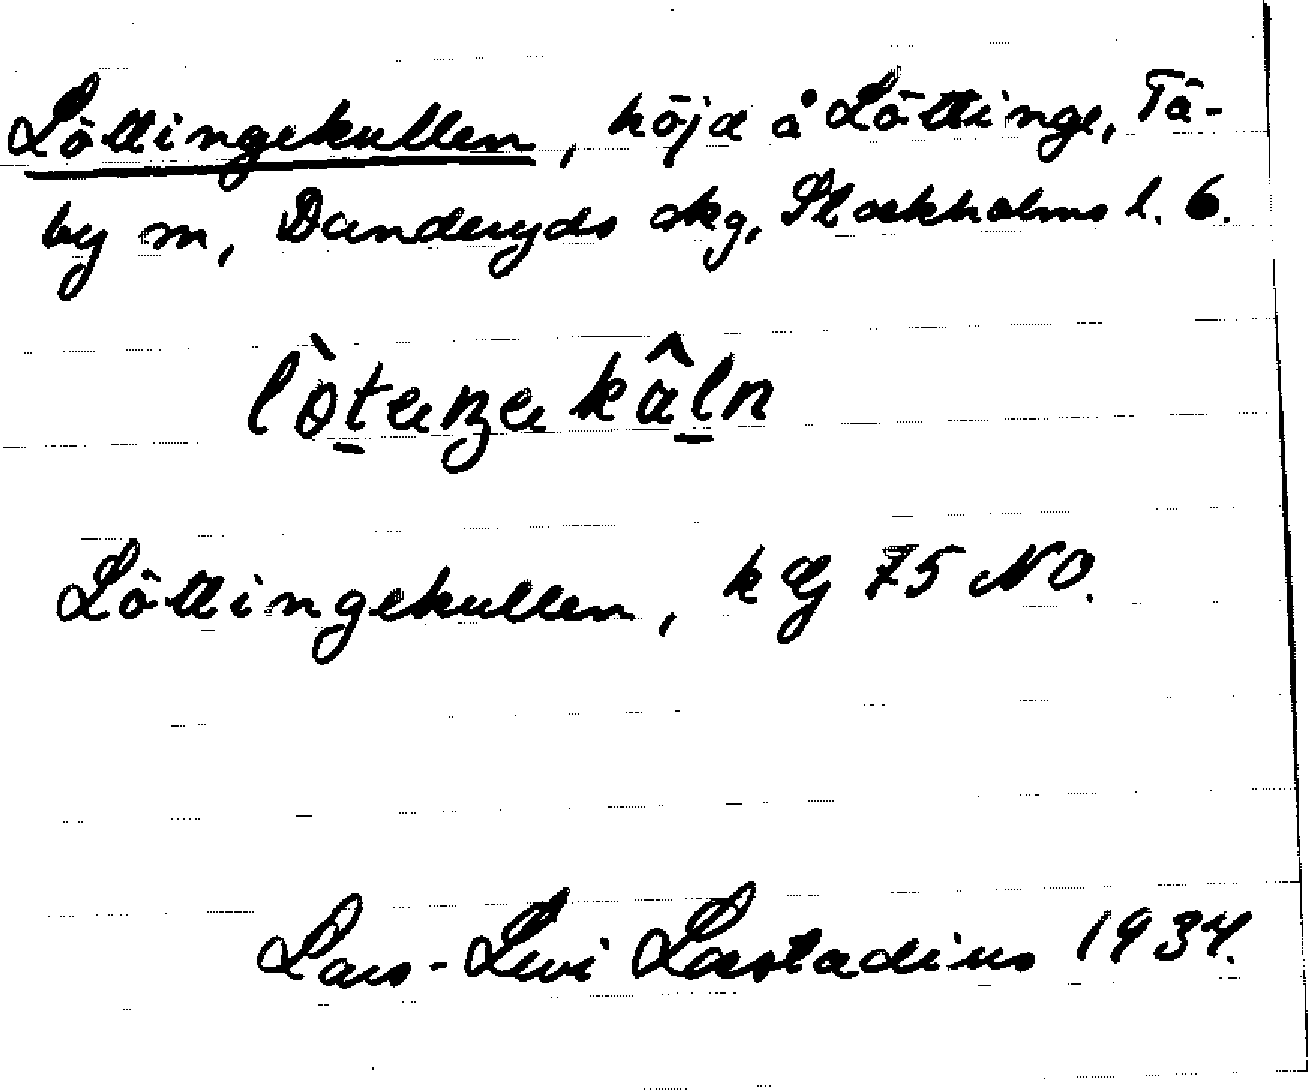 Löttingekullen, höjd å Löttinge, Tä-
by sn, Danderyds skg, Stockholms l. 6.
Löttingekullen, k Eg 75 NO.
Lars-Levi Læstadius 1934.